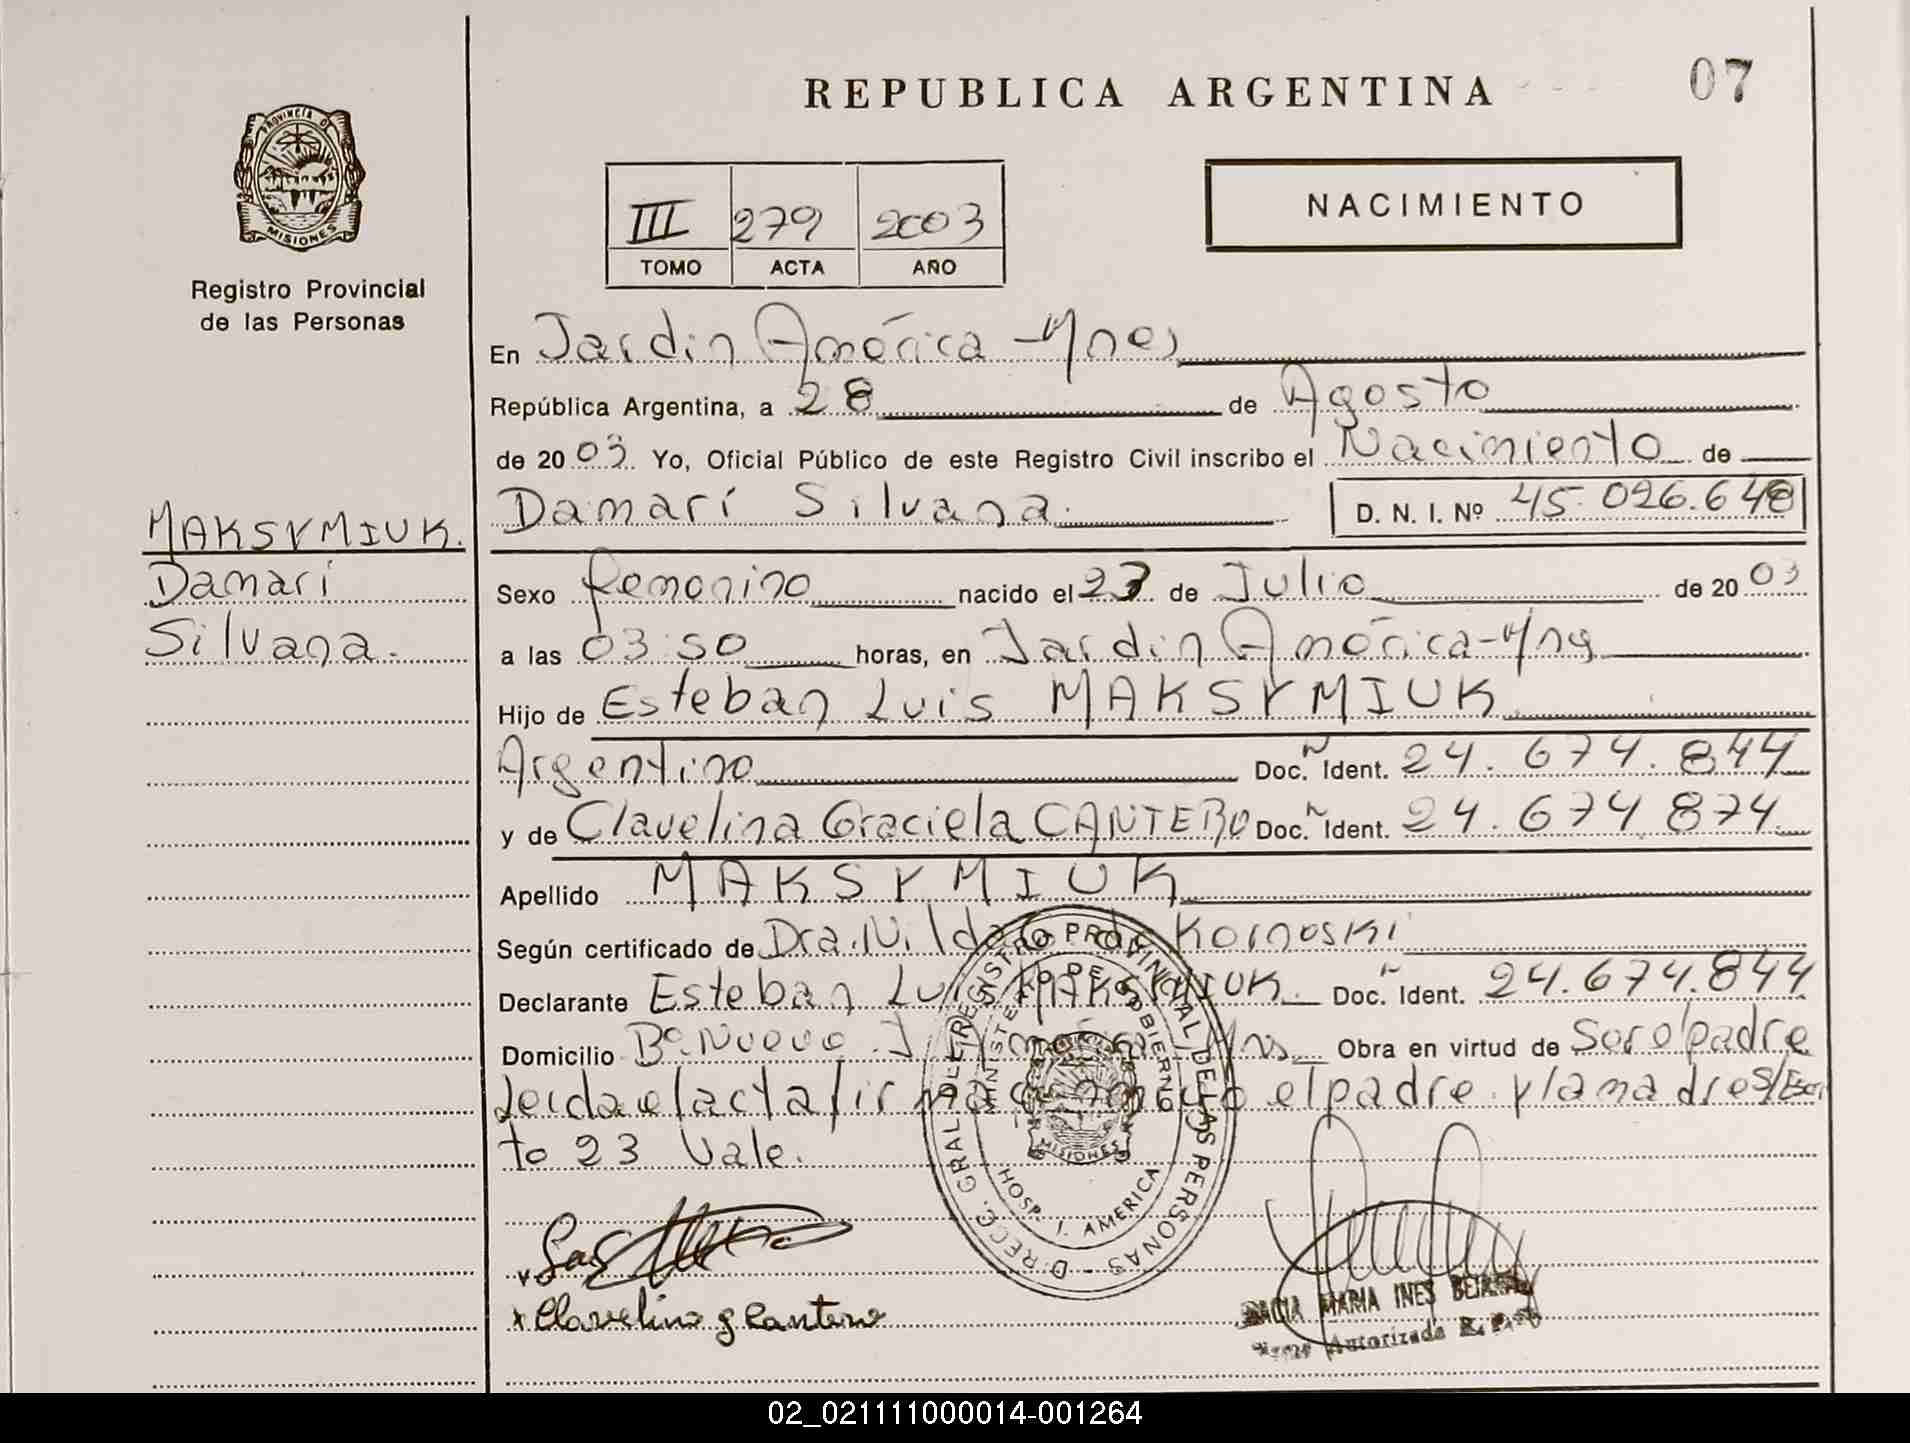 REPUBLICA ARGENTINA
07
PROVINCIA DE
MISIONES
Registro Provincial
de las Personas
III 279 2003
TOMO ACTA AÑO
NACIMIENTO
En Jardin América - Mnes
República Argentina, a 28 de Agosto
de 2003. Yo, Oficial Público de este Registro Civil inscribo el Nacimiento de
Damarí Silvana. D. N. I. Nº 45.026.648
MAKSYMIUK.
Damarí
Silvana.
Sexo femenino nacido el 23 de Julio de 2003
a las 03:50 horas, en Jardin América - Mnes
Hijo de Esteban Luis MAKSYMIUK
Argentino Doc. Ident. 24.674.844
y de Clavelina Graciela CANTERO Doc. Ident. 24.674.874
Apellido MAKSYMIUK
Según certificado de Dra. Nilda de Kornoski
Declarante Esteban Luis MAKSYMIUK Doc. Ident. 24.674.844
Domicilio Bº. Nuevo J. América Mns Obra en virtud de Ser el padre
Leida el acta firma conmigo el padre y la madre S/Escri
to 23 Vale.
DIRECC. GRAL. DEL REGISTRO PROVINCIAL DE LAS PERSONAS
MINISTERIO DE GOBIERNO
MISIONES
HOSP. J. AMERICA
x Clavelina g Cantero
MARIA INES
Autorizada R. P.
02_021111000014-001264